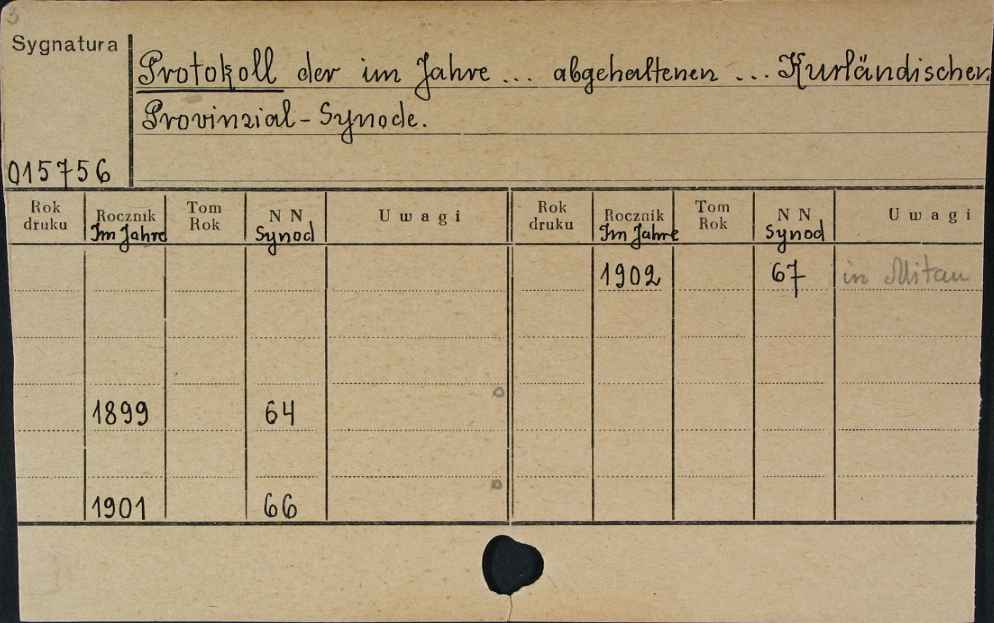 3
Sygnatura
Protokoll der im Jahre ... abgehaltenen ... Kurländischen
Provinzial-Synode.
015756
Rok druku Rocznik Im Jahre Tom Rok N N Synod Uwagi Rok druku Rocznik Im Jahre Tom Rok N N Synod Uwagi
1902 67 in Mitau
1899 64
1901 66